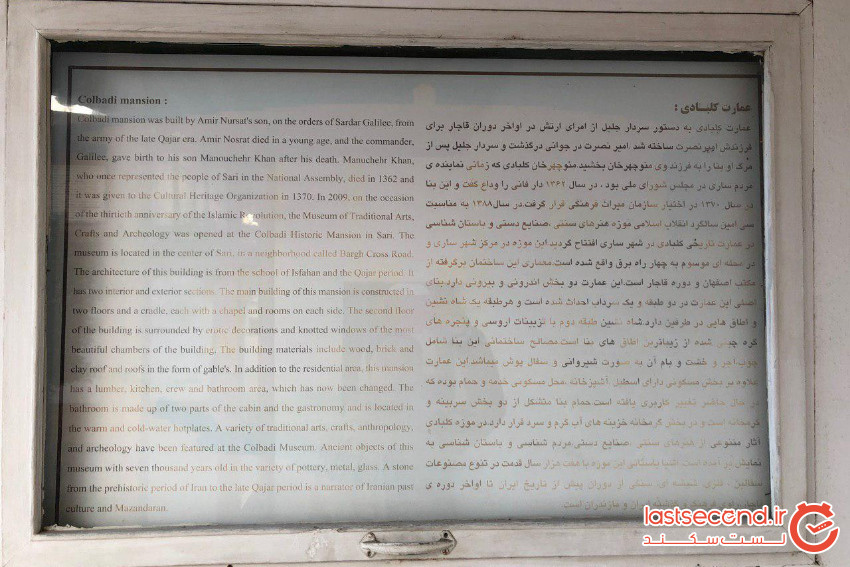 Colbadi mansion :
Colbadi mansion was built by Amir Nursat's son, on the orders of Sardar Galilee, from
the army of the late Qajar era. Amir Nosrat died in a young age, and the commander,
Galilee, gave birth to his son Manouchehr Khan after his death. Manuchehr Khan,
who once represented the people of Sari in the National Assembly, died in 1362 and
it was given to the Cultural Heritage Organization in 1370. In 2009, on the occasion
of the thirtieth anniversary of the Islamic Revolution, the Museum of Traditional Arts,
Crafts and Archeology was opened at the Colbadi Historic Mansion in Sari. The
museum is located in the center of Sari, in a neighborhood called Bargh Cross Road.
The architecture of this building is from the school of Isfahan and the Qajar period. It
has two interior and exterior sections. The main building of this mansion is constructed in
two floors and a cradle, each with a chapel and rooms on each side. The second floor
of the building is surrounded by erotic decorations and knotted windows of the most
beautiful chambers of the building. The building materials include wood, brick and
clay roof and roofs in the form of gable's. In addition to the residential area, this mansion
has a lumber, kitchen, crew and bathroom area, which has now been changed. The
bathroom is made up of two parts of the cabin and the gastronomy and is located in
the warm and cold-water hotplates. A variety of traditional arts, crafts, anthropology,
and archeology have been featured at the Colbadi Museum. Ancient objects of this
museum with seven thousand years old in the variety of pottery, metal, glass. A stone
from the prehistoric period of Iran to the late Qajar period is a narrator of Iranian past
culture and Mazandaran.
عمارت کلبادی :
عمارت کلبادی به دستور سردار جلیل از امرای ارتش در اواخر دوران قاجار برای
فرزندش امیرنصرت ساخته شد. امیر نصرت در جوانی درگذشت و سردار جلیل پس از
مرگ او بنا را به فرزند وی منوچهرخان بخشید. منوچهرخان کلبادی که زمانی نماینده ی
مردم ساری در مجلس شورای ملی بود ، در سال ۱۳۶۲ دار فانی را وداع گفت و این بنا
در سال ۱۳۷۰ در اختیار سازمان میراث فرهنگی قرار گرفت.در سال۱۳۸۸ به مناسبت
سی امین سالگرد انقلاب اسلامی موزه هنرهای سنتی ،صنایع دستی و باستان شناسی
در عمارت تاریخی کلبادی در شهر ساری افتتاح گردید.این موزه در مرکز شهر ساری و
در محله ای موسوم به چهار راه برق واقع شده است.معماری این ساختمان برگرفته از
مکتب اصفهان و دوره قاجار است.این عمارت دو بخش اندرونی و بیرونی دارد.بنای
اصلی این عمارت در دو طبقه و یک سرداب احداث شده است و هرطبقه یک شاه نشین
و اطاق هایی در طرفین دارد.شاه نشین طبقه دوم با تزیینات اروسی و پنجره های
گره چینی شده از زیباترین اطاق های بنا است.مصالح ساختمانی این بنا شامل
چوب،آجر و خشت و بام آن به صورت شیروانی و سفال پوش میباشد.این عمارت
علاوه بر بخش مسکونی دارای اسطبل آشپزخانه ،محل مسکونی خدمه و حمام بوده که
در حال حاضر تغییر کاربری یافته است.حمام بنا متشکل از دو بخش سربینه و
گرمخانه است و در بخش گرمخانه خزینه های آب گرم و سرد قرار دارد.در موزه کلبادی
آثار متنوعی از هنرهای سنتی ،صنایع دستی،مردم شناسی و باستان شناسی به
نمایش در آمده است. اشیا باستانی این موزه با هفت هزار سال قدمت در تنوع مصنوعات
سفالین ، فلزی، شیشه ای، سنگی از دوران پیش از تاریخ ایران تا اواخر دوره ی
ایران و مازندران است.
lastsecond.ir
لست‌سکند